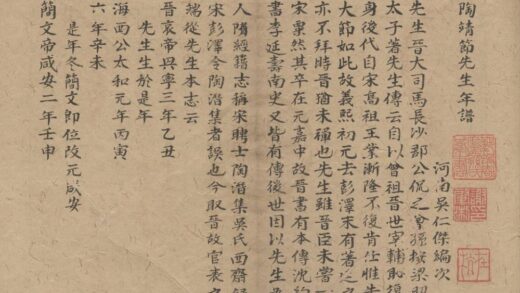 陶靖節先生年譜
河南吳仁傑編次
先生晉大司馬長沙郡公侃之曾孫按梁昭
太子著先生傳云自以曾祖晉世宰輔恥復
身後代自宋高祖王業漸隆不復肯仕惟先
大節如此故義熙初元去彭澤末有著之
亦不拜時晉猶未禪也先生雖晉臣未嘗一
宋粟然其卒在元嘉中故晉書有本傳沈約
書李延壽南史又皆有傳後世因以先生
人隋經籍志稱宋聘士陶潛集吳氏西齋錄
宋彭澤令陶潛集者誤也今取晉故官表之
端從先生本志云
晉哀帝興寧三年乙丑
先生生於是年
海西公太和元年丙寅
六年辛未
是年冬簡文即位改元咸安
簡文帝咸安二年壬申